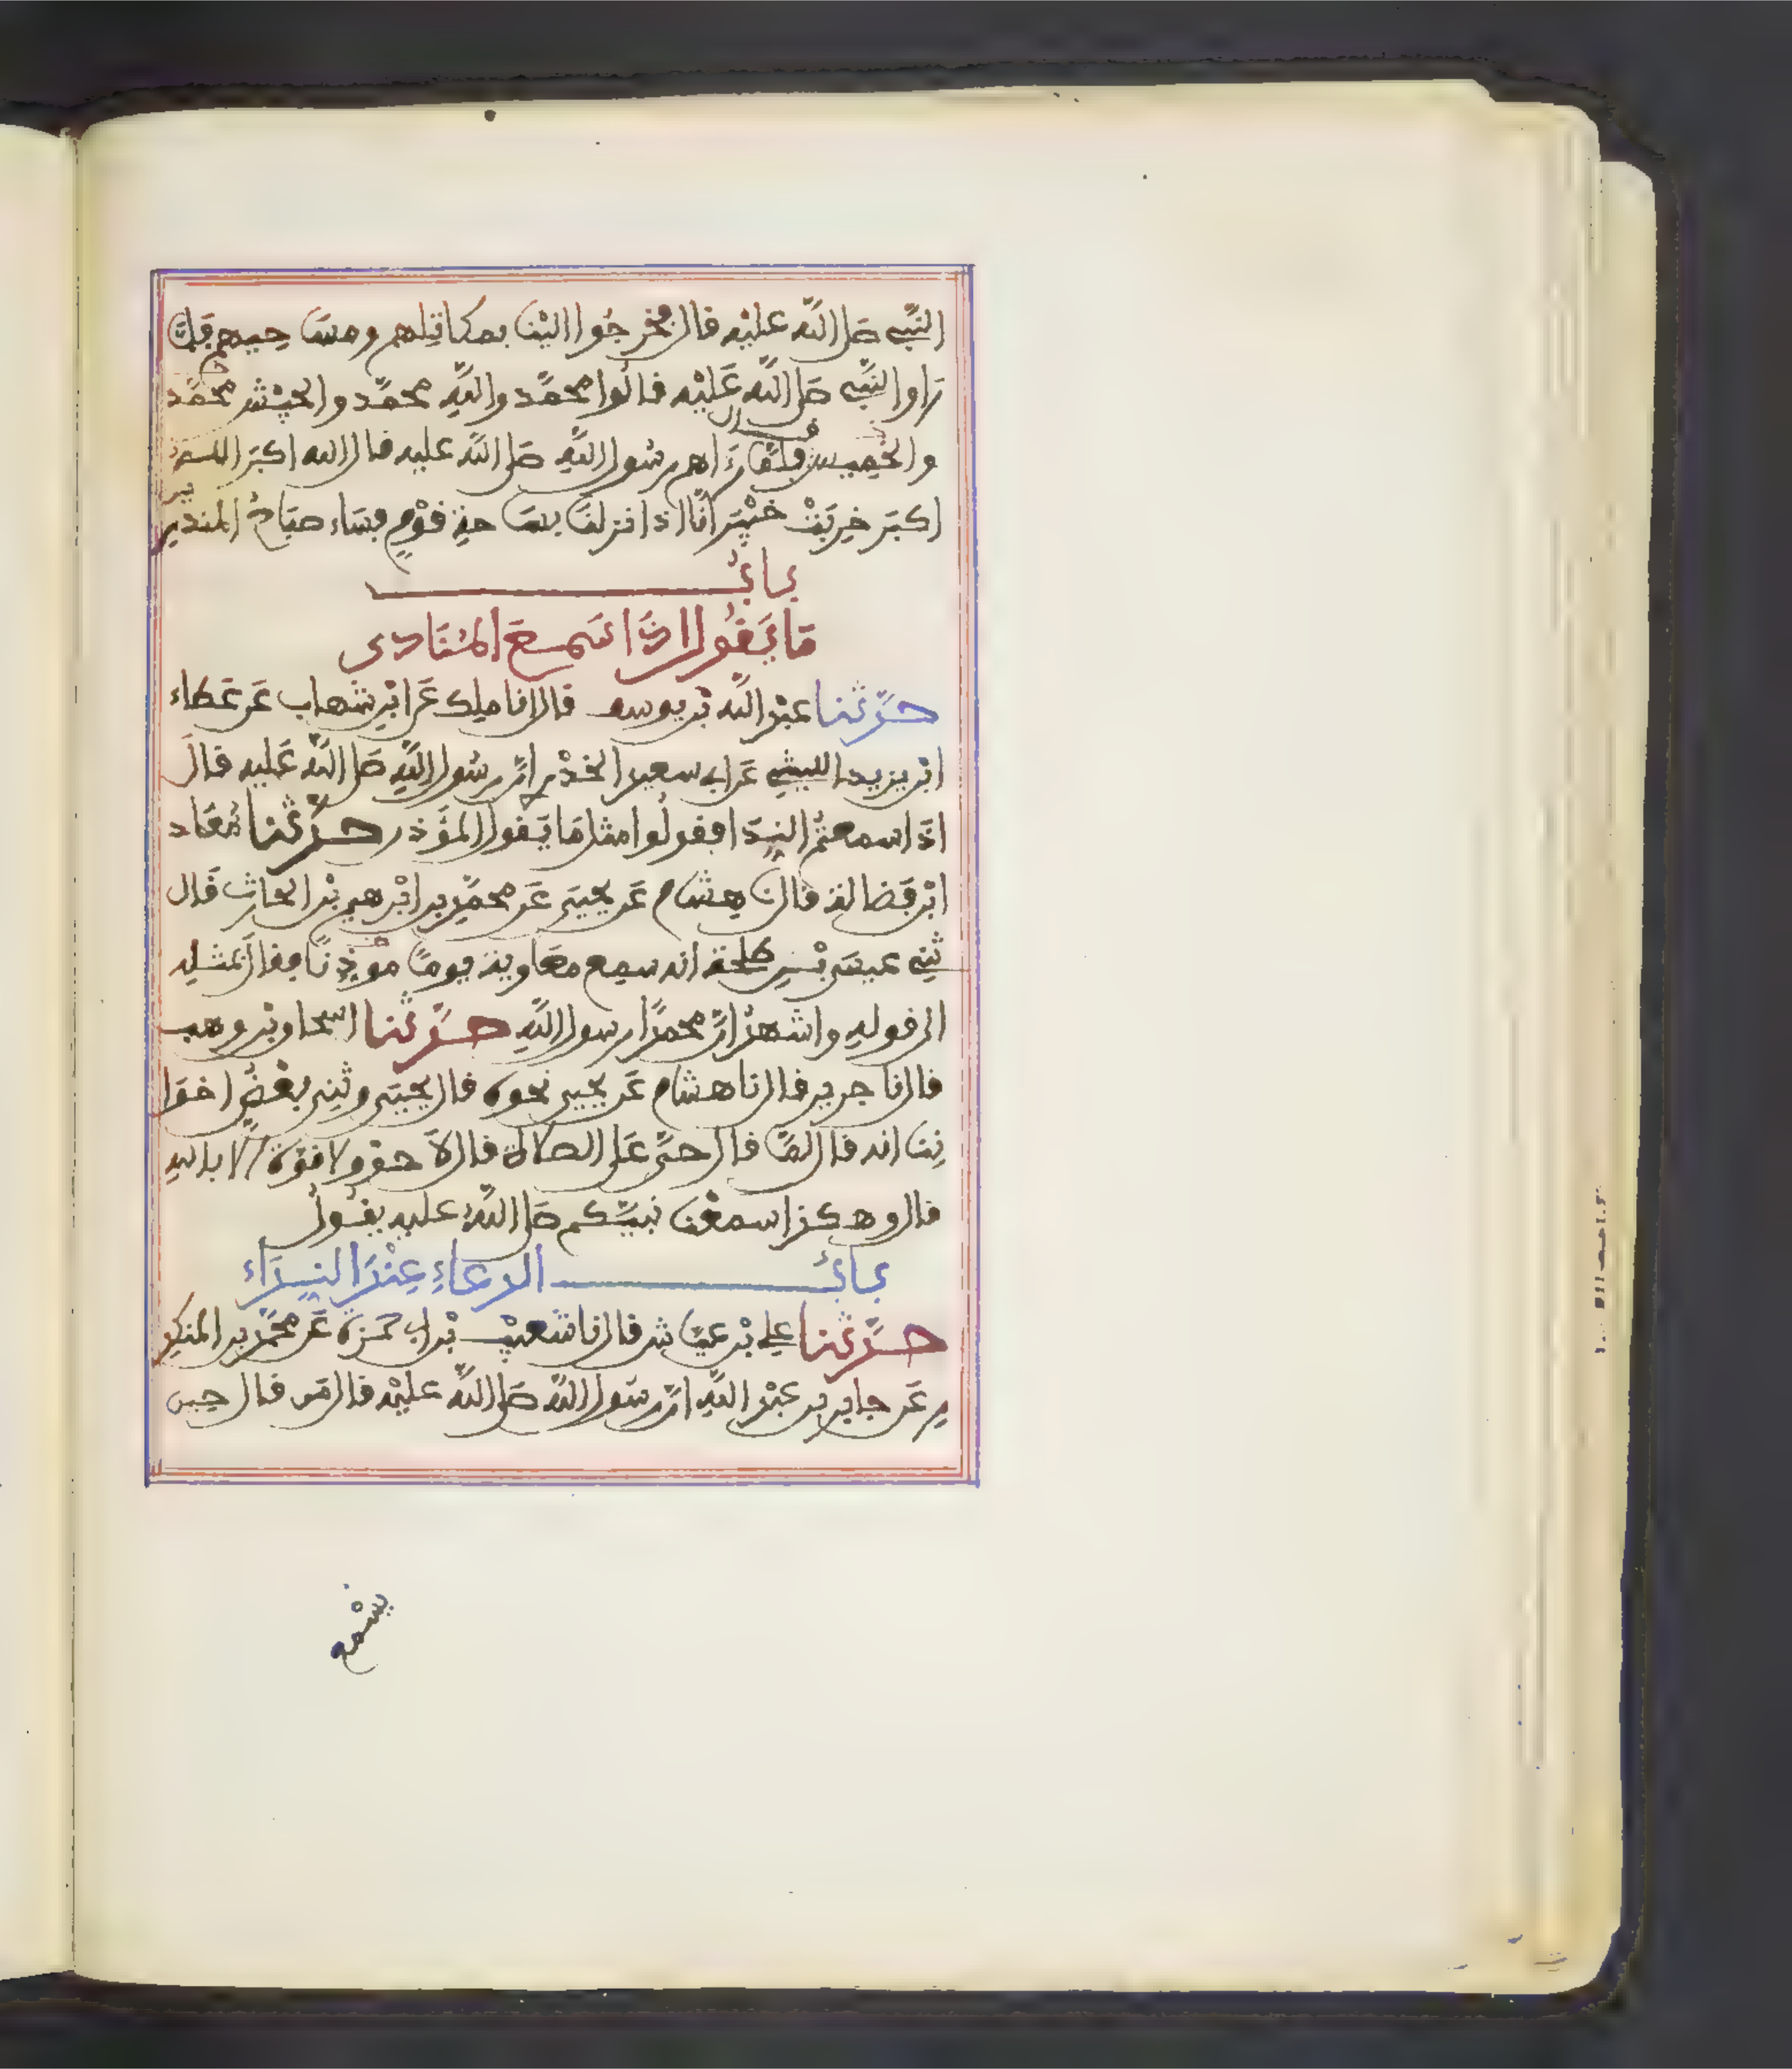 النَّبِي صَلى اللَّه عليْه قال فخرجُوا اليْنا بمكاتِلهم ومسَاحِيهم فلمَّا
رَاوا النَّبِي صَلى اللَّه عَليْه قالُوا محمَّد واللَّهِ محمَّد والجيْش محمَّد
والخَمِيس قال فلمَّا رَءاهم رسُول اللَّهِ صَلى اللَّه عليه قال الله اكبرَ الله
اكبَر خرِبَتْ خيْبَر انَّا اذا نزلنَا بسَاحةِ قوْمٍ فسَاء صبَاحُ المنذرين
بابُ
مَا يَقُول اذَا سَمِعَ المُنَادِى
حدَّثنا عبْد اللَّه بْن يوسف قال انا ملِك عَن ابْنِ شهاب عَن عَطاء
ابْن يزيد الليثِي عَن ابِي سعيد الخدْرِي انَّ رسُول اللَّهِ صَلى اللَّه عَليه قالَ
اذَا سمعتُمُ النِّدَا فقولُوا مثل مَا يَقول المؤَذن حدَّثنا مُعَاد
ابْن فَضالة قال نا هِشَام عَن يحيَى عَن محمَّدِ بن ابْرهيم بْن الحارث قَال
ثنِي عيسَى بْن طلحَة انه سمِع معَاوية يومًا موذِنًا فقالَ بمثلِه
الى قولهِ واشهدُ انَّ محمدًا رسول اللَّهِ حدَّثنا اسحاق بْن وهب
قال نا جرير قال نا هشام عَن يحيى نحوه قال يحيَى وثنِي بعْضُ اخوَا
نِنَا انه قال لمَّا قال حيَّ عَلى الصلاة قال لاَ حوْل ولا قوَّة الا باللهِ
قال وهكذا سمعْنا نبيَّكم صَلى اللَّهُ عليهِ يقُولُ
بابُ الدعَاءِ عِنْدَ النِّدَاء
حدَّثنا علِي بْن عيَّاش قال نا شعيْب بْن ابِي حمزة عَن محمَّد بن المنكد
رِ عَن جابر بن عبْد اللَّهِ انَّ رسَول اللَّه صَلى اللَّه عليْه قال مَن قال حِين
يسْمع